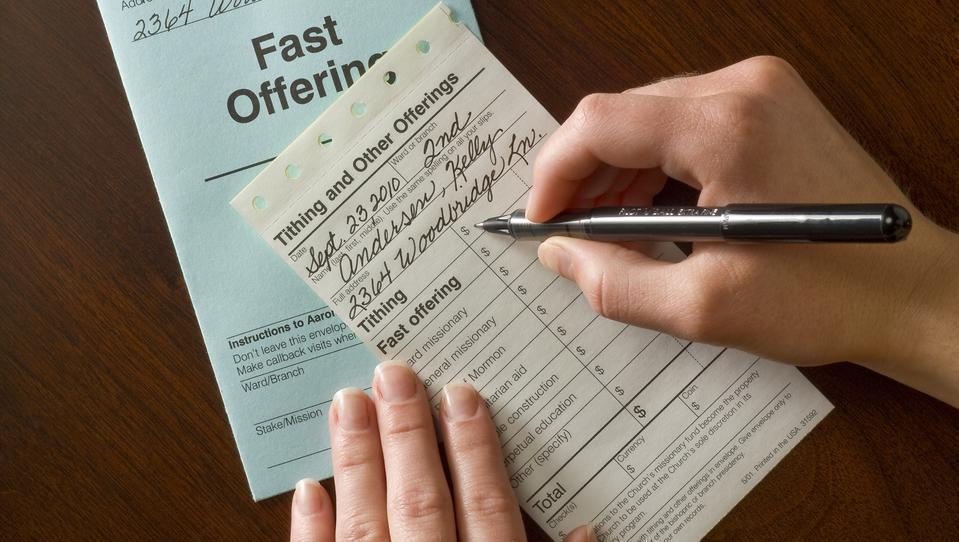 2364
Fast
Offering
Instructions to Aaron
Don't leave this envelope
Make callback visits when
Ward/Branch
Stake/Mission
Tithing and Other Offerings
Date
Ward or branch
Sept. 23 2010 2nd
Name (last, first, middle). Use the same spelling on all your slips.
Andersen, Kelly
Full address
2364 Woodbridge Ln.
Tithing $
Fast offering $
ard missionary $
eneral missionary $
Mormon $
tarian aid $
le construction $
rpetual education $
Other (specify) $
Total $
Currency
$
Coin
$
Check(s)
$
tions to the Church's missionary fund become the property
hurch to be used at the Church's sole discretion in its
ry program.
with tithing and other offerings in envelope. Give envelope only to
of the bishopric or branch presidency.
our own records.
6/01. Printed in the USA. 31592